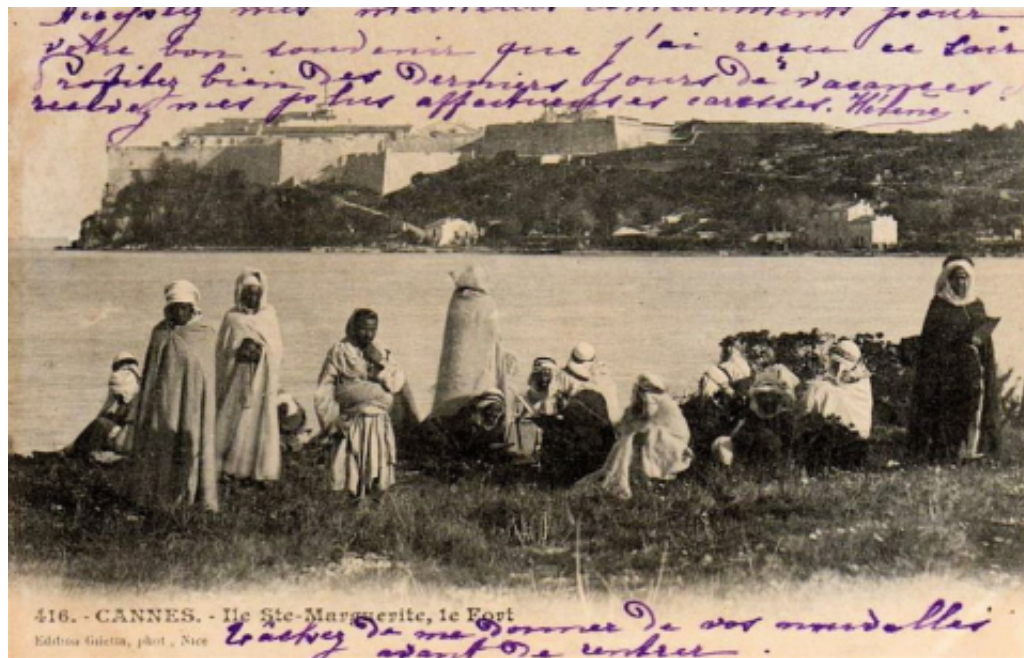 mes meilleurs compliments pour
votre bon souvenir que j'ai reçu ce soir
Profitez bien des derniers jours de vacances.
mes plus affectueuses caresses. Hélène.
416. - CANNES. - Ile Ste-Marguerite, le Fort
Edition Giletta, phot., Nice
Tâchez de me donner de vos nouvelles
avant de rentrer.